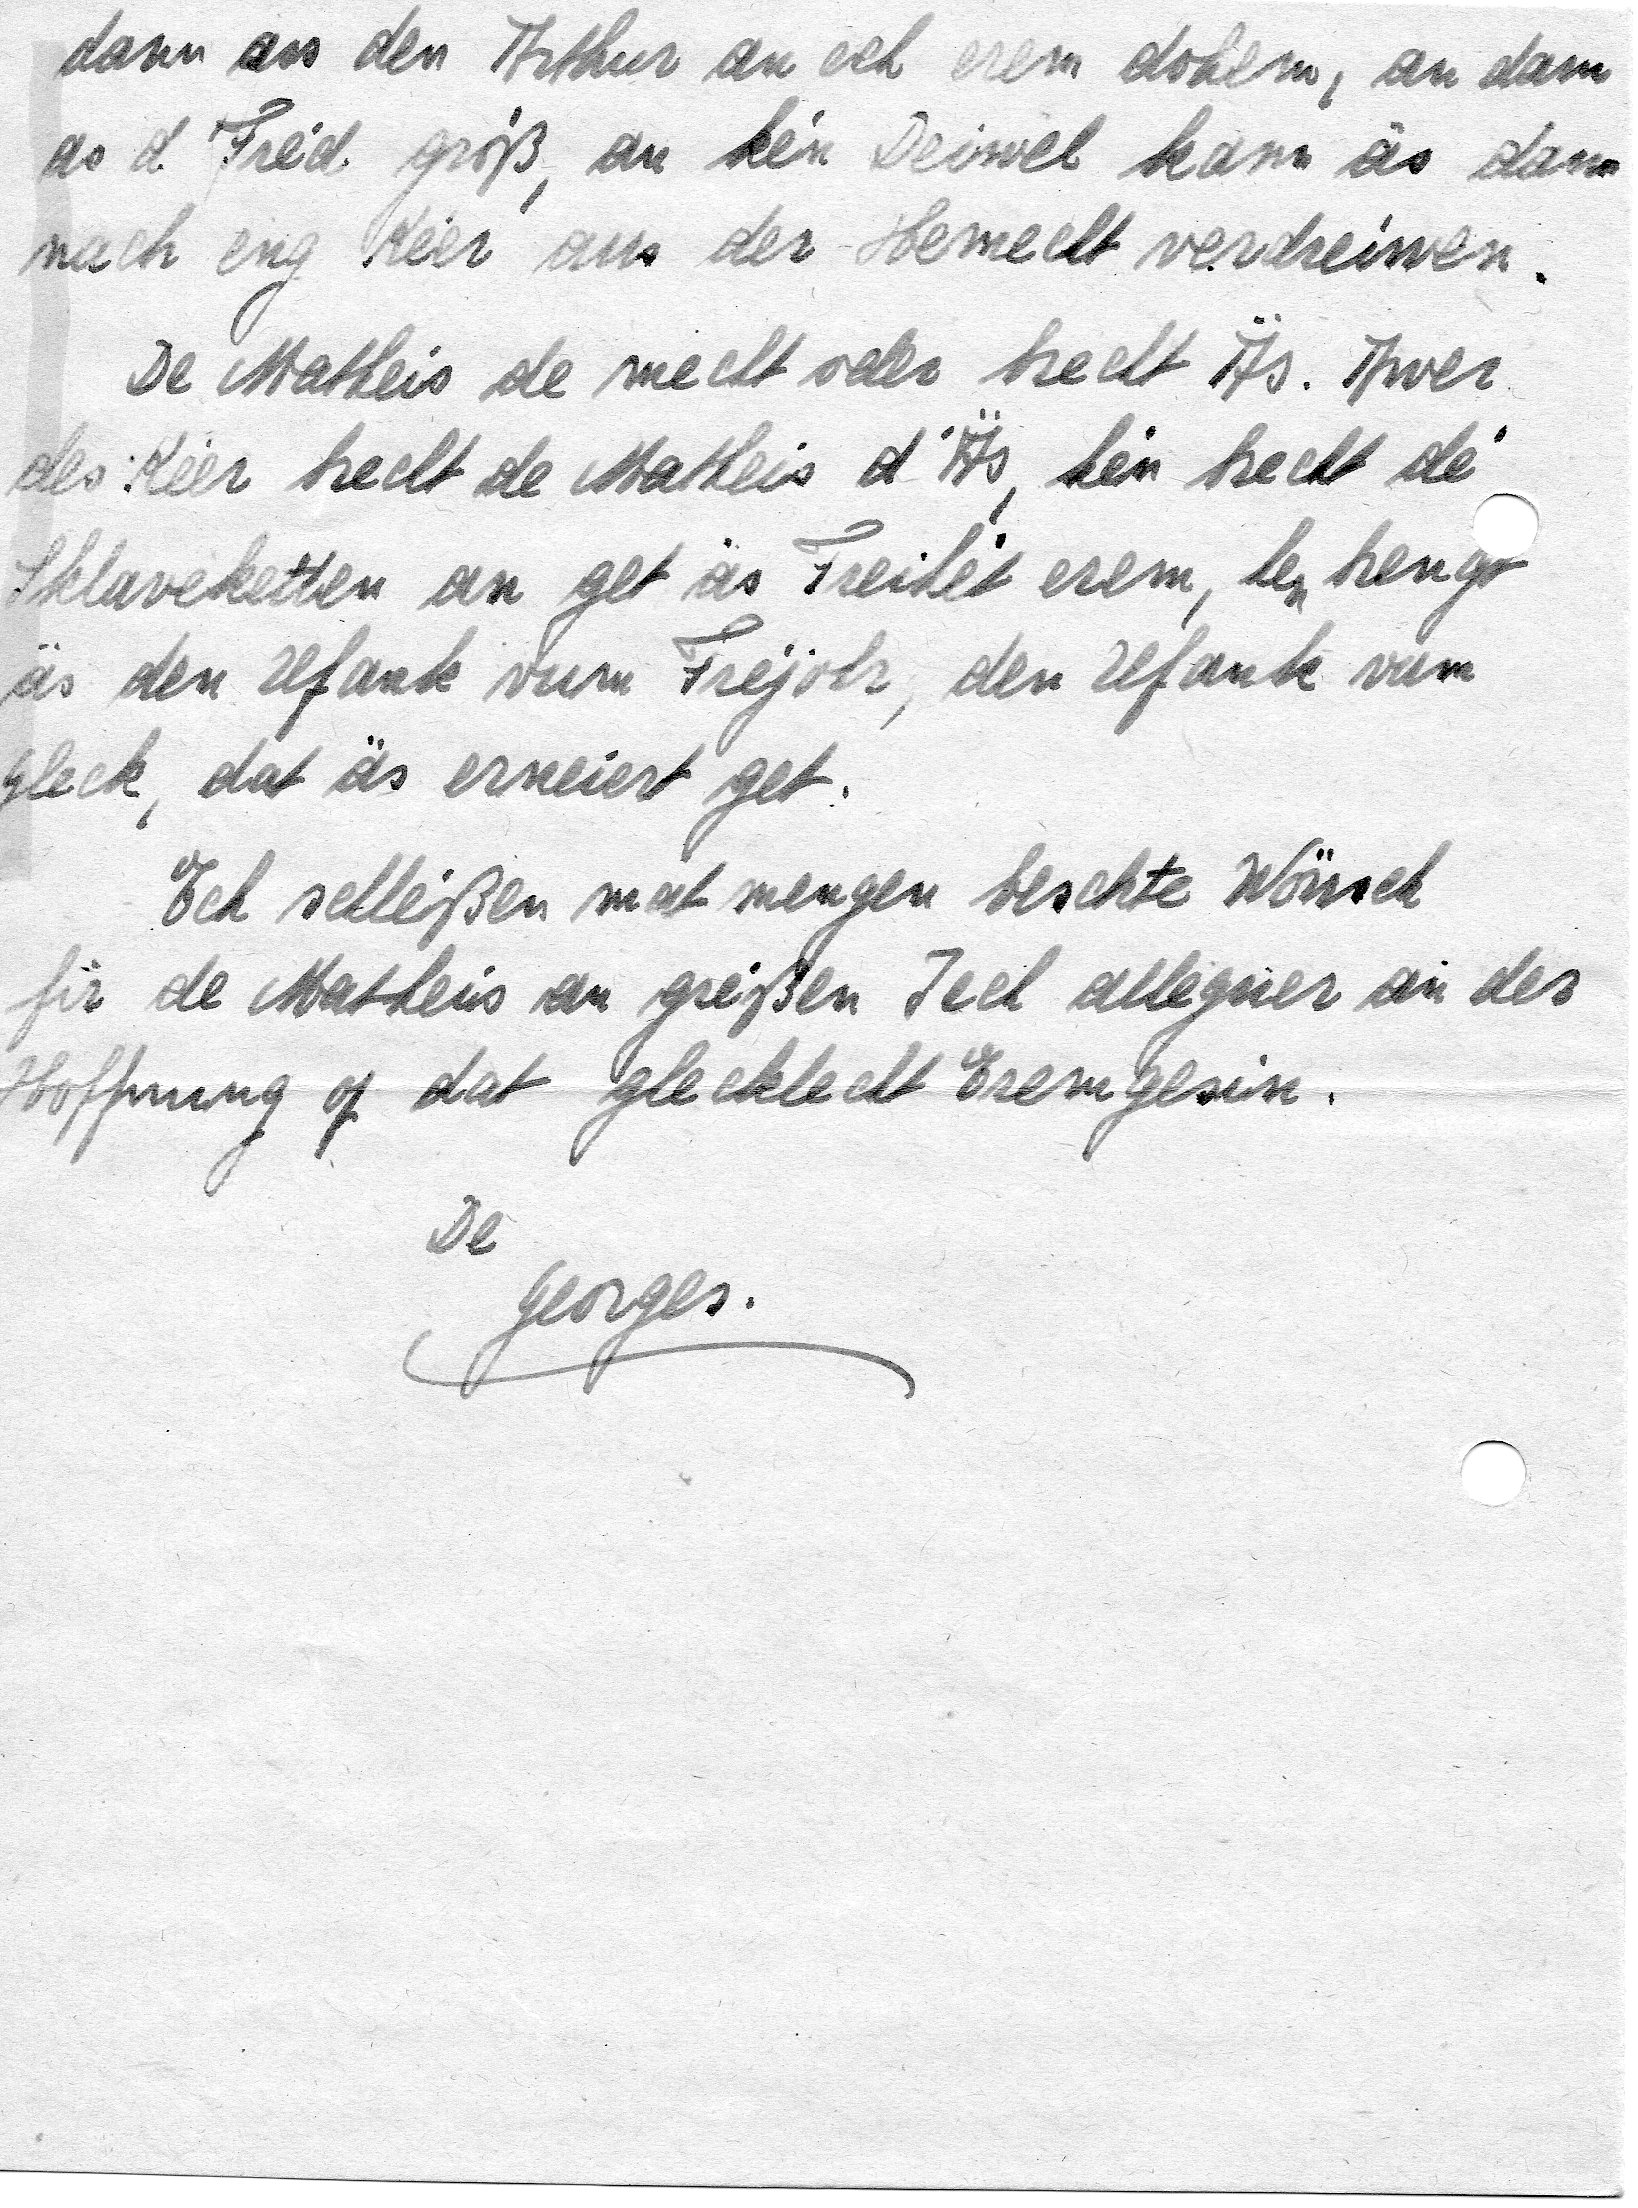 dann as den Arthur an ech erem dohém, an dann
as d. Fréd. gróß, an kén Deiwel kann äs dann
nach eng Kéer aus der Hemecht verdreiwen.
De Matheis de mecht oder brecht Äs. Awer
dës Kéer brecht de Matheis d'Äs, hén brecht dé
Sklaveketten an get äs Freihét erem, hen brengt
äs den Ufank vum Fréjohr, den Ufank vum
Gleck, dat äs erneiert get.
Ech schléißen mat mengen beschte Wönsch
fir de Matheis an gréißen Iech alleguer an der
Hoffnung op dat glecklecht Eremgesin.
De
Georges.